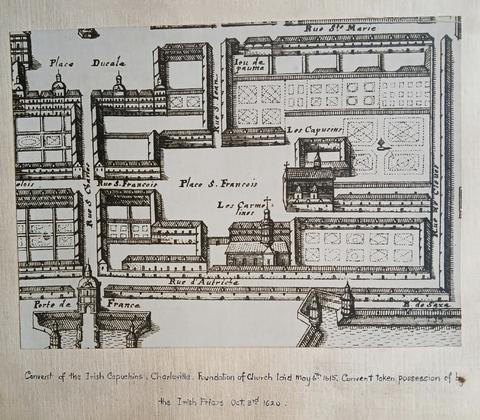 Rue Ste Marie
Place Ducale
Ieu de
pauma
Rue S. Iean
Les Capucins
Rue S. Charles
Rue S. Francois
Place S. Francois
Les Carme
lines
Rue d'Autriche
Porte de France
B. de Saxe
Convent of the Irish Capuchins, Charleville. Foundation of Church laid May 6th 1615. Convent taken possession of by
the Irish Friars Oct. 3rd 1620.